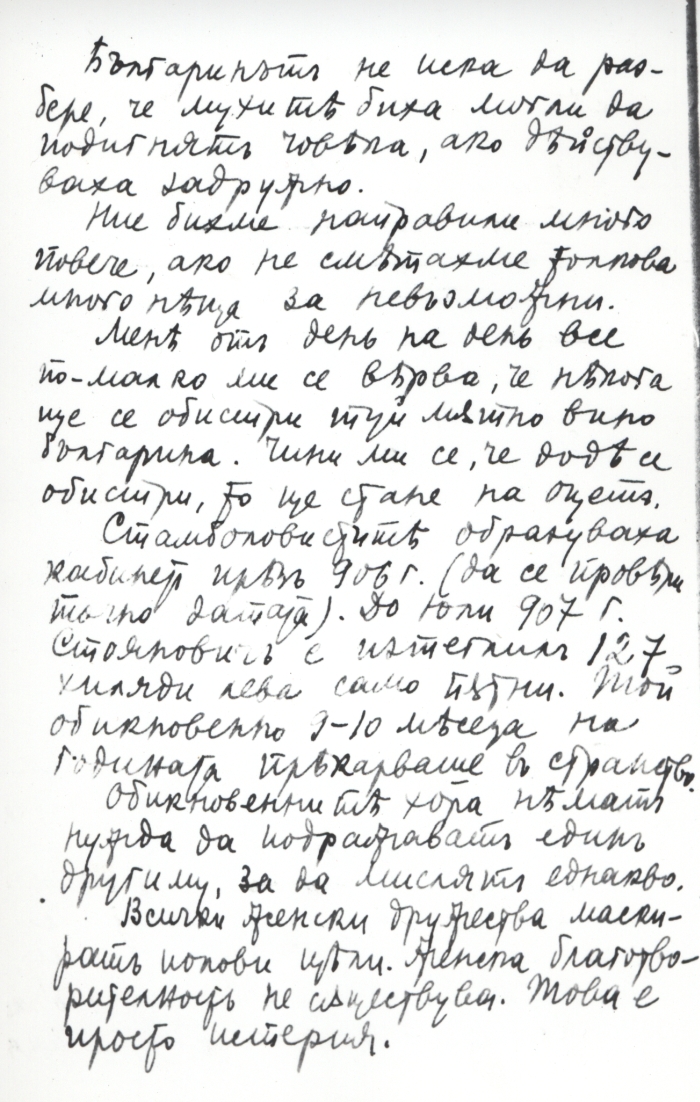 Българинътъ не иска да раз-
бере, че мухитѣ биха могли да
подигнатъ човѣка, ако дѣйству-
ваха задружно.
Ние бихме направили много
повече, ако не смѣтахме толкова
много нѣща за невъзможни.
Менѣ отъ день на день все
по-малко ми се вѣрва, че нѣкога
ще се обистри туй мѫтно вино
българина. Чини ми се, че додѣ се
обистри, то ще стане на оцетъ.
Стамболовиститѣ образуваха
кабинетъ прѣзъ 906 г. (да се провѣри
точно датата). До юли 907 г.
Стояновичъ е изтеглилъ 127
хиляди лева само пѫтни. Той
обикновенно 9-10 мѣсеца на
годината прѣкарваше въ странство.
Обикновеннитѣ хора нѣматъ
нужда да подражаватъ единъ
другиму, за да мислятъ еднакво.
Всички женски дружества маски-
ратъ полови цѣли. Женска благотво-
рителность не сѫществува. Това е
просто истерия.